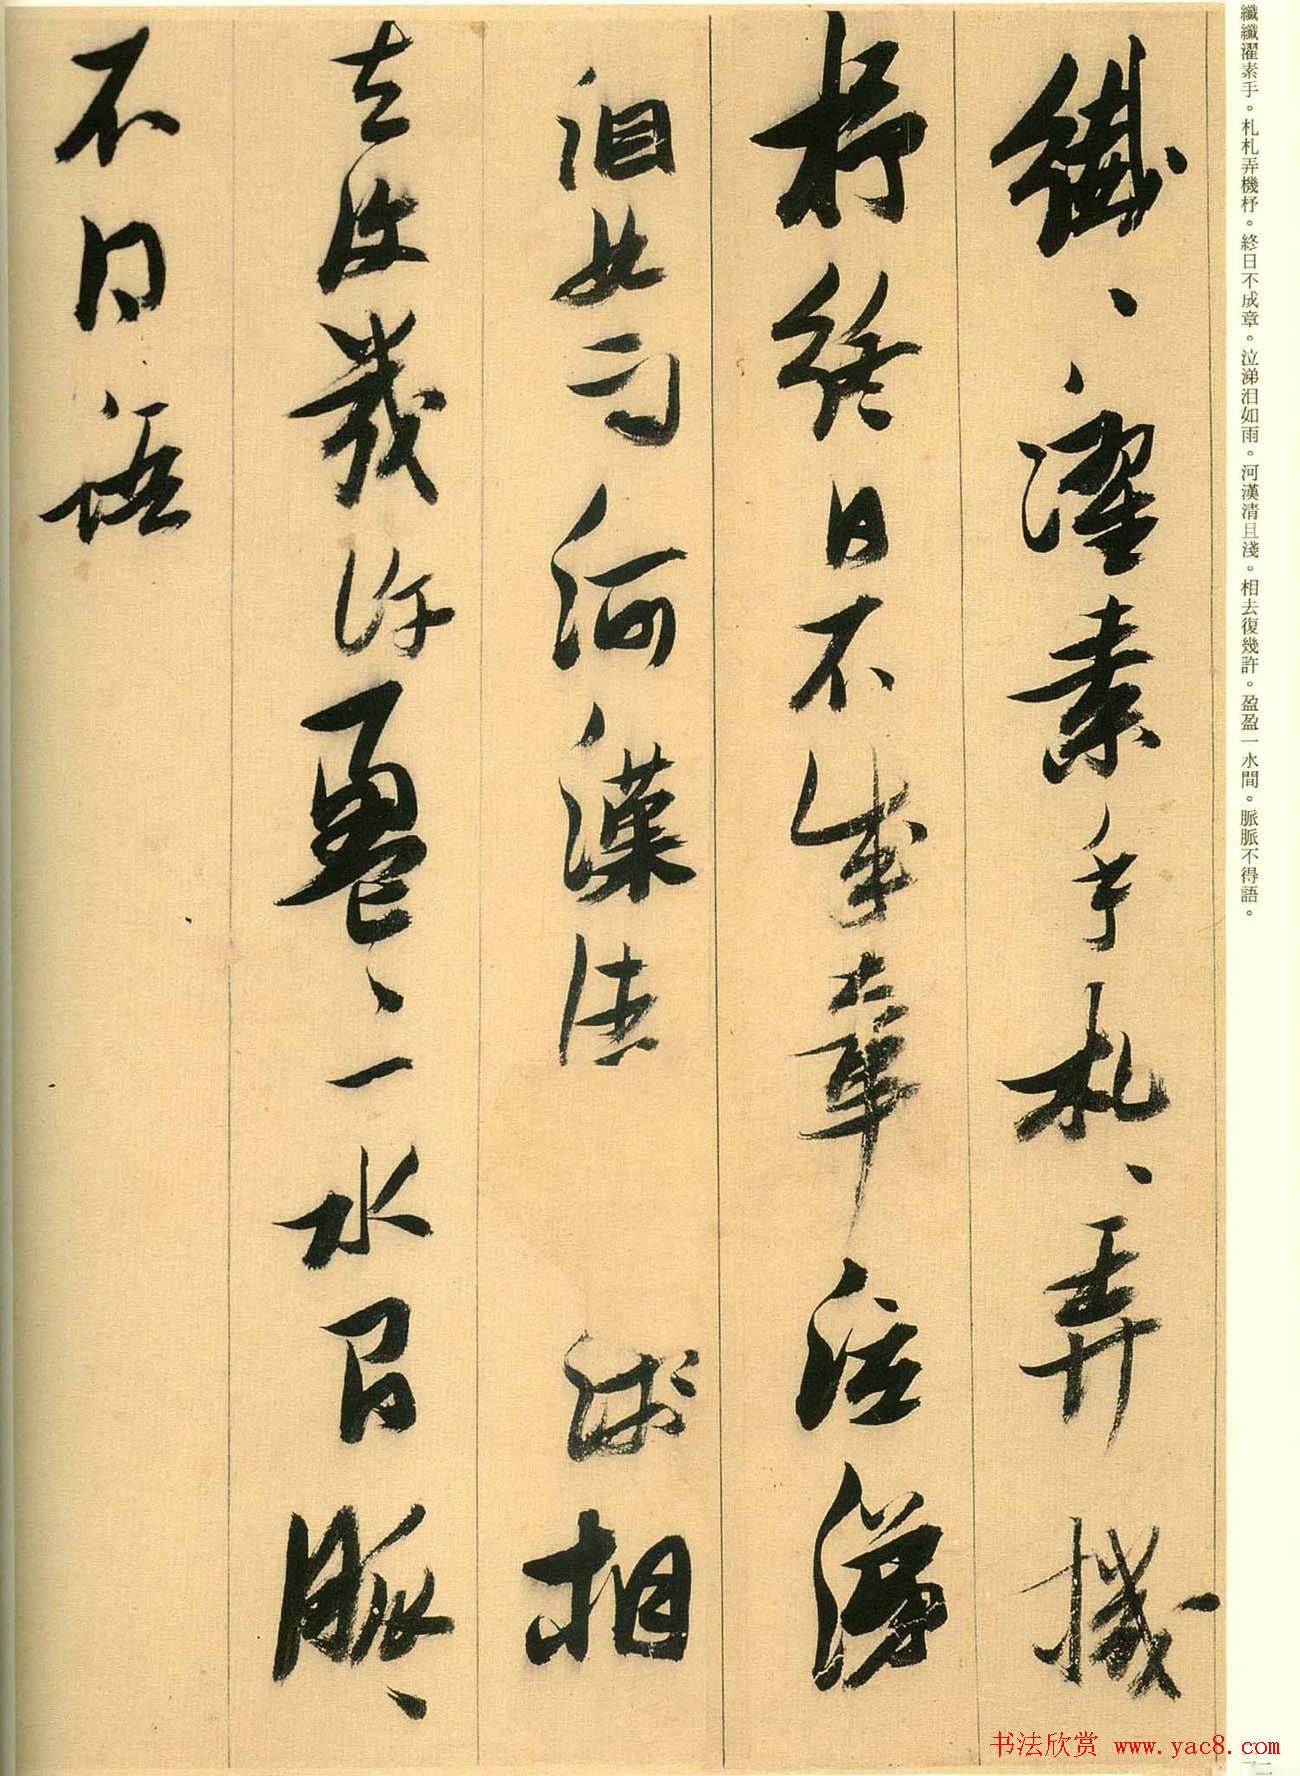 纖纖濯素手。札札弄機杼。終日不成章。泣涕泪如雨。河漢清且淺。相去復幾許。盈盈一水間。脈脈不得語。
纖、濯素手札、弄機
杼終日不成章泣涕
泪如雨河漢清淺相
去復幾許盈、一水間脈、
不得語
书法欣赏 www.yac8.com